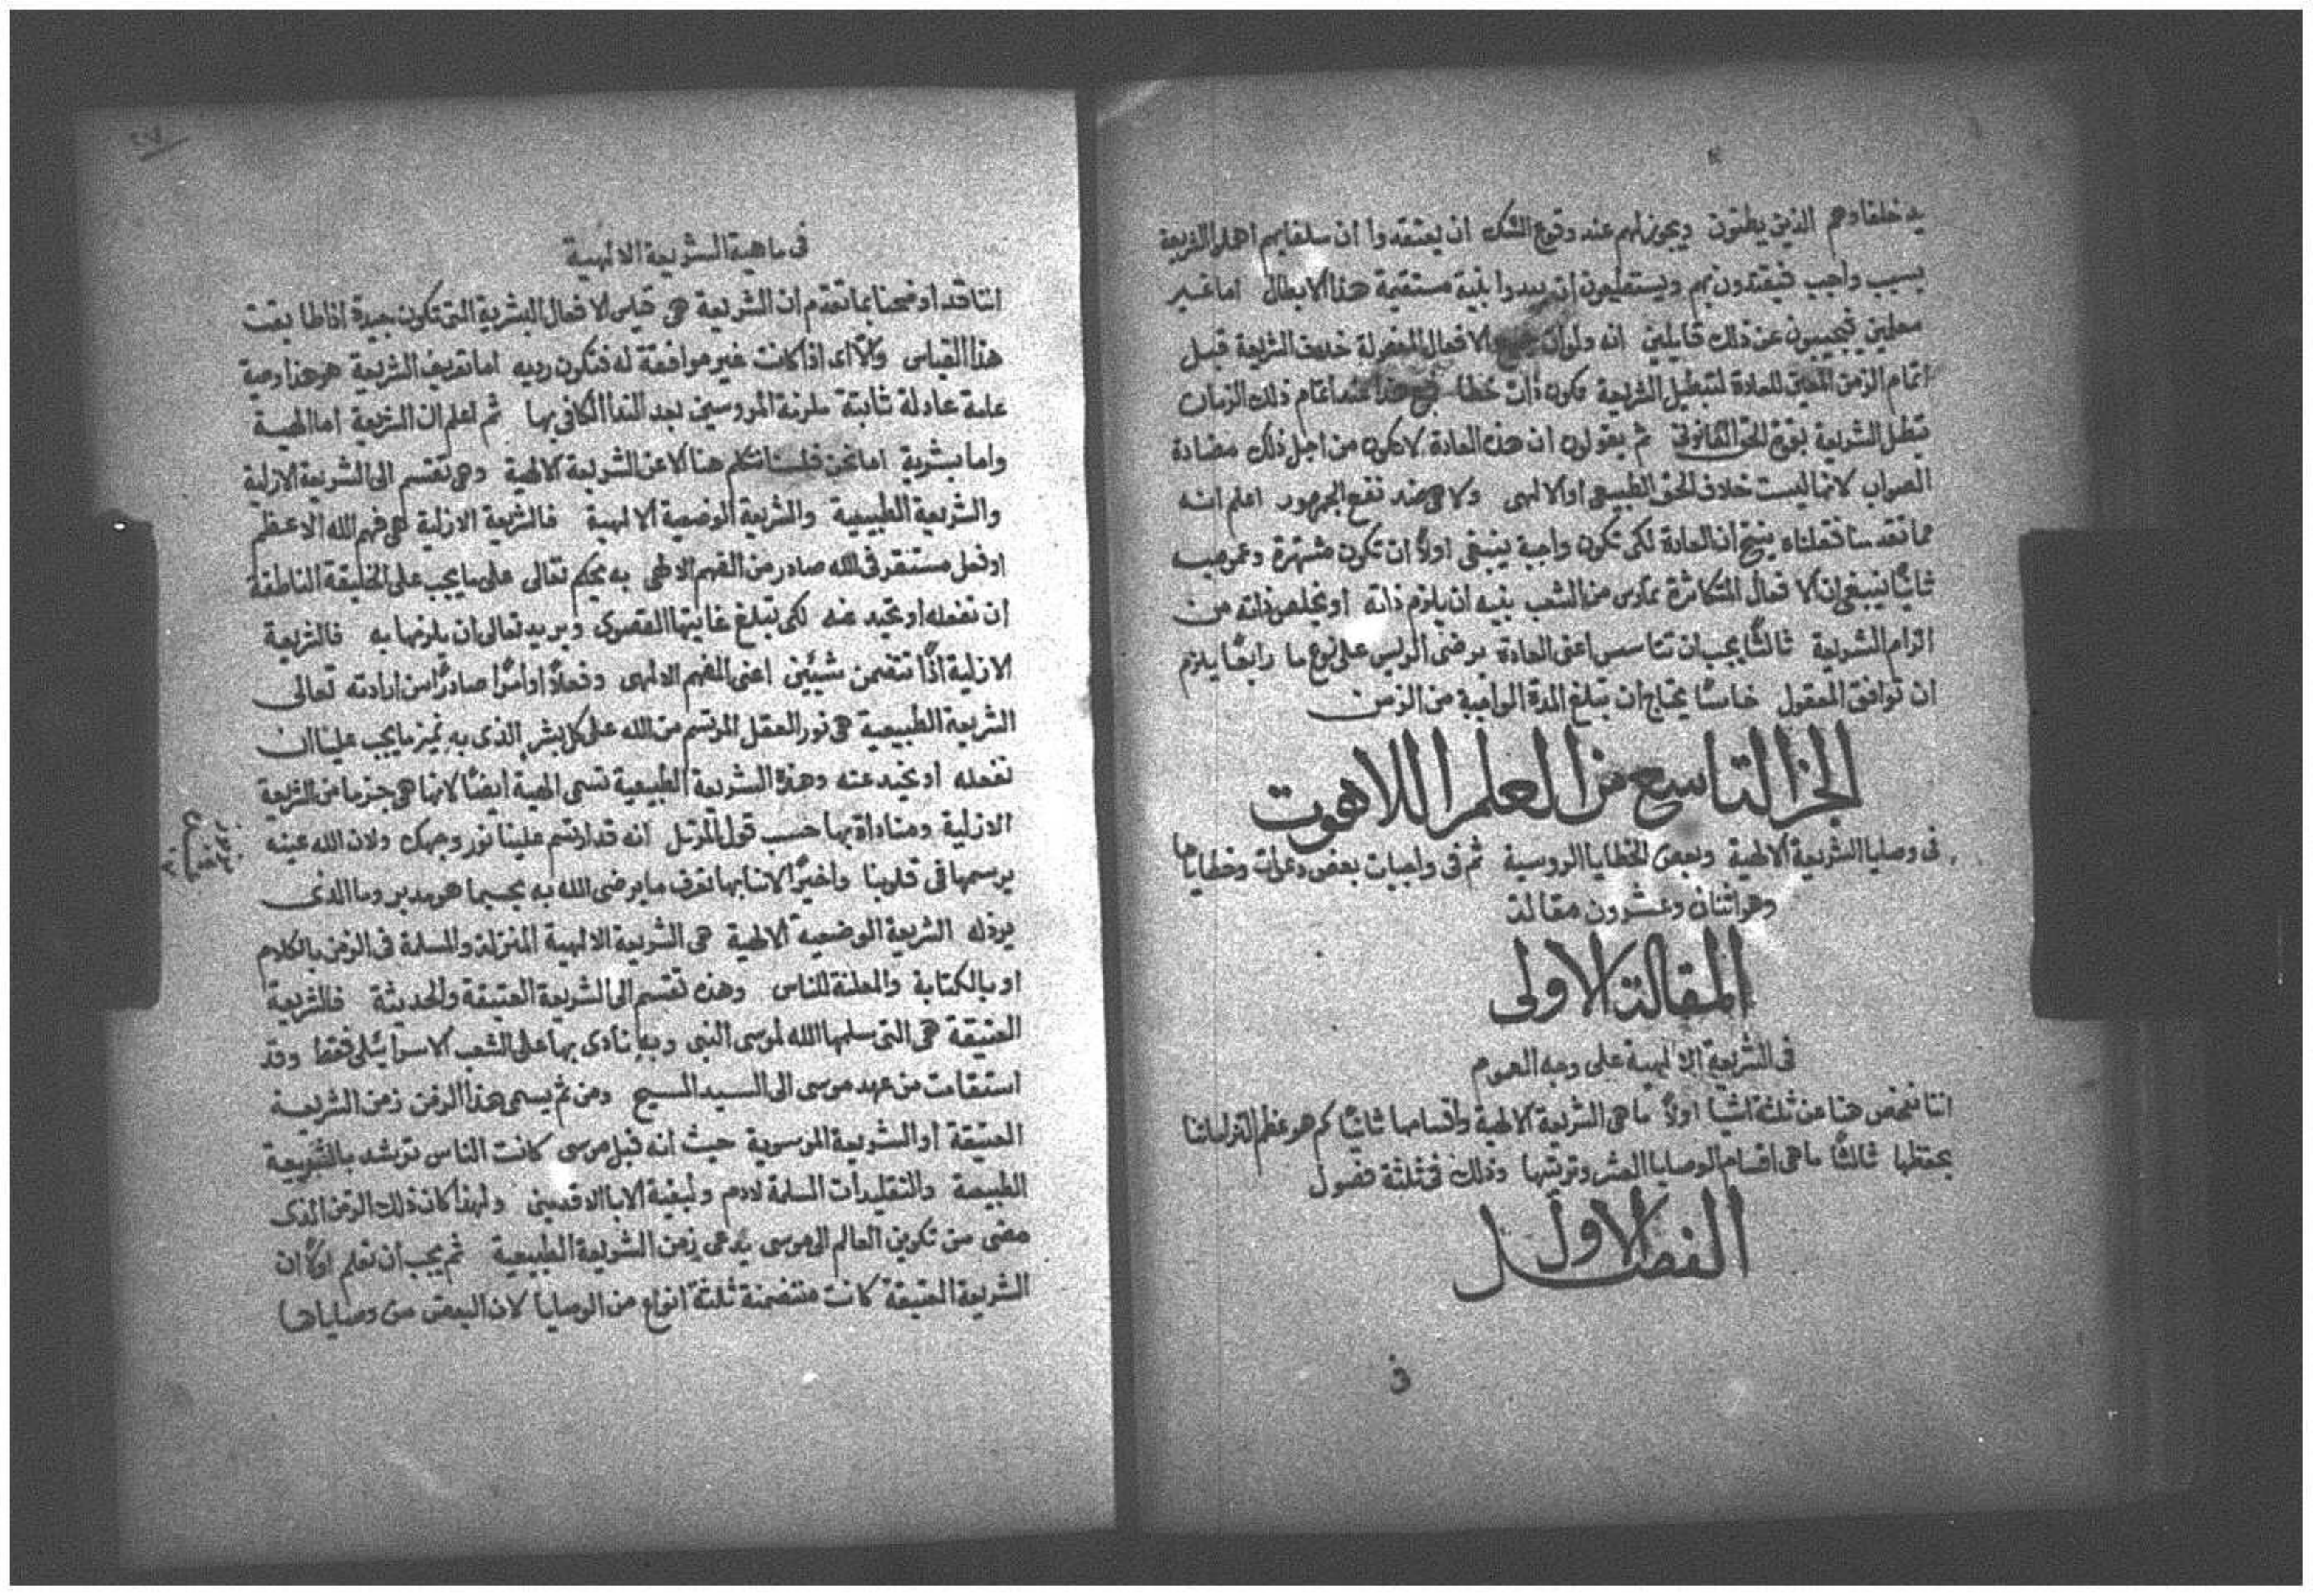 خلفاوهم الذين يطنون ويجوز لهم عند وقوع الشك ان يعتقدوا ان سلفايهم اهملوا الشريعة
بسبب واجب فيقتدون بهم ويستطيعون ان يبدوا بنية مستقيمة هذا الابطال اما غير
معلمين فيجيبون عن ذلك قايلين انه ولو ان الافعال المفعولة خلاف الشريعة قبل
اتمام الزمن للعادة لتبطيل الشريعة تكون ذات خطا عند اتمام ذلك الزمان
تبطل الشريعة بقوة الحق القانونى ثم يقولون ان هذه العادة لا تكون من اجل ذلك مضادة
الصواب لانها ليست خلاف الحق الطبيعى او الالهى ولا هى ضد نفع الجمهور اعلم انه
مما تقدمنا فقلناه ينتج ان العادة لكى تكون واجبة ينبغى اولاً ان تكون مشتهرة وعمومية
ثانياً ينبغى ان الافعال المتكاثرة تمارس من الشعب بنية ان يلزم ذاته او يخلص ذاته من
الزام الشريعة ثالثاً يجب ان تتاسس اعنى العادة برضى الريس على نوع ما رابعاً يلزم
ان توافق المعقول خامساً يحتاج ان تبلغ المدة الواجبة من الزمن
الجز التاسع من العلم اللاهوت
فى وصايا الشريعة الالهية وبعض الخطايا الروسية ثم فى واجبات بعض دعوات وخطاياها
وهو اثنان وعشرون مقالة
المقالة الاولى
فى الشريعة الالهية على وجه العموم
اننا نفحص هنا عن ثلثة اشيا اولاً ما هى الشريعة الالهية واقسامها ثانياً كم هو عظم التزامنا
بحفظها ثالثاً ما هى اقسام الوصايا العشر وترتيبها وذلك فى ثلثة فصول
الفصل الاول
فى
فى ماهية الشريعة الالهية
اننا قد اوضحنا بما تقدم ان الشريعة هى قياس الافعال البشرية التى تكون جيدة اذا طابقت
هذا القياس والا اى اذا كانت غير موافقة له فتكون رديه اما تعريف الشريعة هو هذا وصية
عامة عادلة ثابتة ملزمة المروسين بعد الندا الكافى بها ثم اعلم ان الشريعة اما الهية
واما بشرية اما نحن فلسنا نتكلم هنا الا عن الشريعة الالهية وهى تقسم الى الشريعة الازلية
والشريعة الطبيعية والشريعة الوضعية الالهية فالشريعة الازلية هى فهم الله الاعظم
او فعل مستقر فى الله صادر من الفهم الالهى به يحكم تعالى على ما يجب على الخليقة الناطقة
ان تفعله او تحيد عنه لكى تبلغ غايتها القصوى ويريد تعالى ان يلزمها به فالشريعة
الازلية اذًا تتضمن شيئين اعنى الفهم الالهى وفعلاً او امرًا صادرًا من ارادته تعالى
الشريعة الطبيعية هى نور العقل المرتسم من الله على كل بشر الذى به نميز ما يجب علينا ان
نفعله او نحيد عنه وهذه الشريعة الطبيعية تسمى الهية ايضًا لانها هى جزء ما من الشريعة
الازلية ومناداة بها حسب قول المرتل انه قد ارتسم علينا نور وجهك ولان الله عينه
يرسمها فى قلوبنا واخيرًا لاننا بها نعرف ما يرضى الله به بحسبما هو مدبر وما الذى
يرذله الشريعة الوضعية الالهية هى الشريعة الالهية المنزلة والمسلمة فى الزمن بالكلام
او بالكتابة والمعلنة للناس وهذه تقسم الى الشريعة العتيقة والحديثة فالشريعة
العتيقة هى التى سلمها الله لموسى النبى وبه نادى بها على الشعب الاسرائيلى فقط وقد
استقامت من عهد موسى الى السيد المسيح ومن ثم يسمى هذا الزمن زمن الشريعة
العتيقة او الشريعة الموسوية حيث انه قبل موسى كانت الناس ترشد بالشريعة
الطبيعية والتقليدات المسلمة لادم ولبقية الابا الاقدمين ولهذا كان ذلك الزمن الذى
مضى من تكوين العالم الى موسى يدعى زمن الشريعة الطبيعية ثم يجب ان نعلم اولاً ان
الشريعة العتيقة كانت متضمنة ثلثة انواع من الوصايا لان البعض من وصاياها